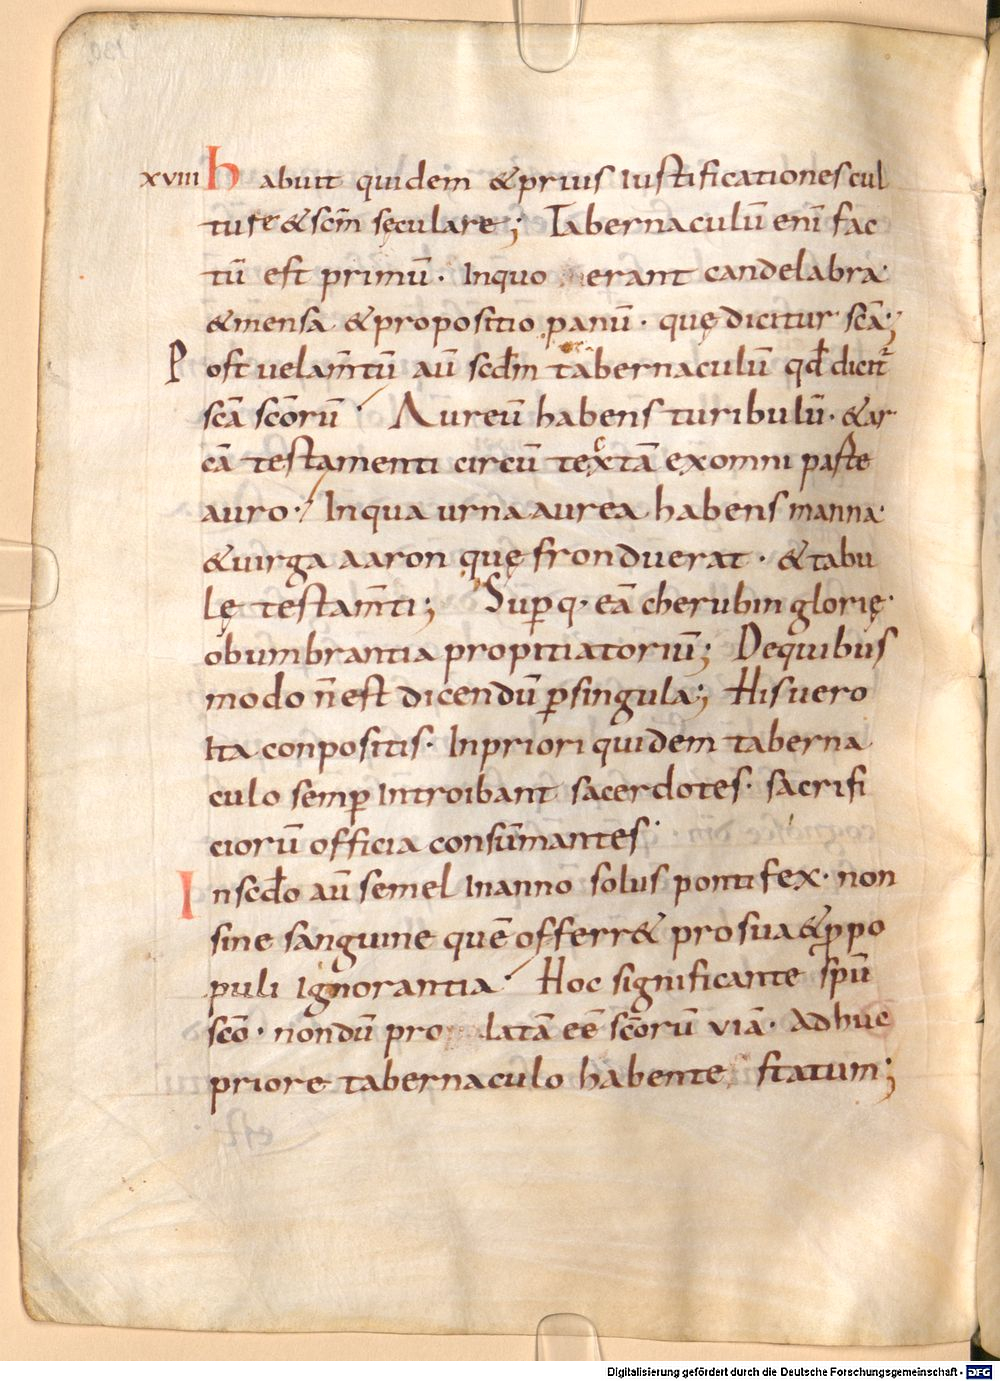 xviii habuit quidem &prius iustificationes cul
ture &scm̄ sęculare; Tabernaculū enī fac
tū est primū· Inquo erant candelabra·
&mensa &propositio panū· quę dicitur scā;
Post uelam̄tū aū scdm̄ tabernaculū qd̄ dicit̄
scā scōrū· Aureū habens turibulū· &ar
cā testamenti circū tectā exomni parte
auro· Inqua urna aurea habens manna·
&uirga aaron quę fronduerat· &tabu
lę testam̄ti; Sup̄ q· eā cherubin glorię·
obumbrantia propitiatoriū; Dequibus
modo n̄ est dicendū p̄singula; His uero
Ita conpositis· Inpriori quidem taberna
culo semp̄ introibant sacerdotes· sacrifi
ciorū officia consūmantes·
Inscdo aū semel Inanno solus pontifex· non
sine sanguine quē offerr& pro sua &p̄ po
puli ignorantia· Hoc significante sp̄ū
scō· nondū pro latā eē scōrū uiā· Adhuc
priore tabernaculo habente statum;
Digitalisierung gefördert durch die Deutsche Forschungsgemeinschaft - DFG